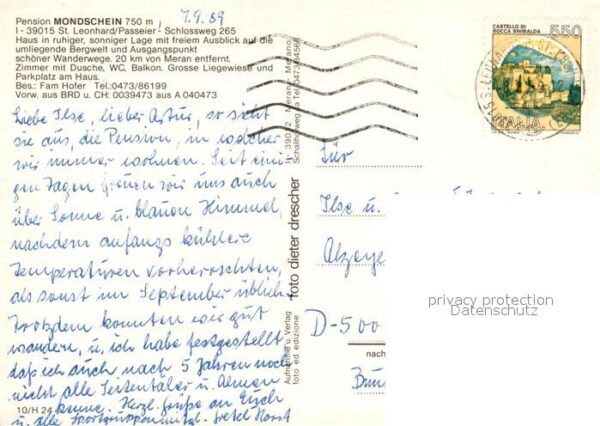 Pension MONDSCHEIN 750 m, 7.9.89
I - 39015 St. Leonhard/Passeier - Schlossweg 265
Haus in ruhiger, sonniger Lage mit freiem Ausblick auf die
umliegende Bergwelt und Ausgangspunkt
schöner Wanderwege. 20 km von Meran entfernt.
Zimmer mit Dusche, WC, Balkon. Grosse Liegewiese und
Parkplatz am Haus.
Bes.: Fam Hofer Tel.0473/86199
Vorw. aus BRD u. CH: 0039473 aus A 040473
Liebe Ilse, lieber Artur, so sieht
sie aus, die Pension, in welcher
wir immer wohnen. Seit eini
gen Tagen freuen wir uns auch
über Sonne u. blauen Himmel,
nachdem anfangs kühlere
Temperaturen vorherrschten,
als sonst im September üblich.
Trotzdem konnten wir gut
wandern, u. ich habe festgestellt
daß ich auch nach 5 Jahren noch
nicht alle Seitentäler u. Almen
kenne. Herzl. Grüße an Euch
u. alle Horst
10/H 24
Aufnahme u. Verlag
foto ed edizione
foto dieter drescher
Meran
CASTELLO DI
ROCCA SINIBALDA
550
ITALIA
Für
Ilse u.
Alzeye
D-500
nach
privacy protection
Datenschutz